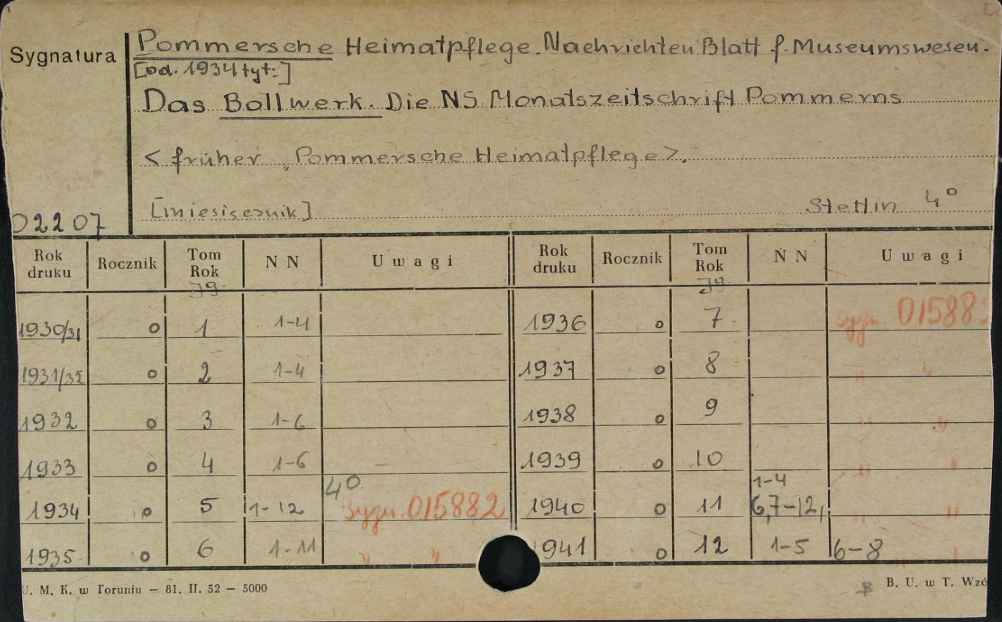 Sygnatura
Pommersche Heimatpflege. Nachrichten Blatt f. Museumswesen.
[od. 1934 tyt:]
Das Bollwerk. Die NS Monatszeitschrift Pommerns
< früher „Pommersche Heimatpflege>.
[miesięcznik] Stettin 4°
02207
Rok druku Rocznik Tom Rok NN Uwagi Rok druku Rocznik Tom Rok NN Uwagi
Jg. Jg.
1930/31 o 1 1-4 1936 o 7 sygn. 01588
1931/32 o 2 1-4 1937 o 8 " "
1932 o 3 1-6 1938 o 9 " "
1933 o 4 1-6 1939 o 10 " "
1934 o 5 1-12 4° Sygn. 015882 1940 o 11 1-4 6,7-12, " "
1935 o 6 1-11 " " 1941 o 12 1-5 6-8 "
U. M. K. w Toruniu — 81. II. 52 — 5000 B. U. w T. Wzó